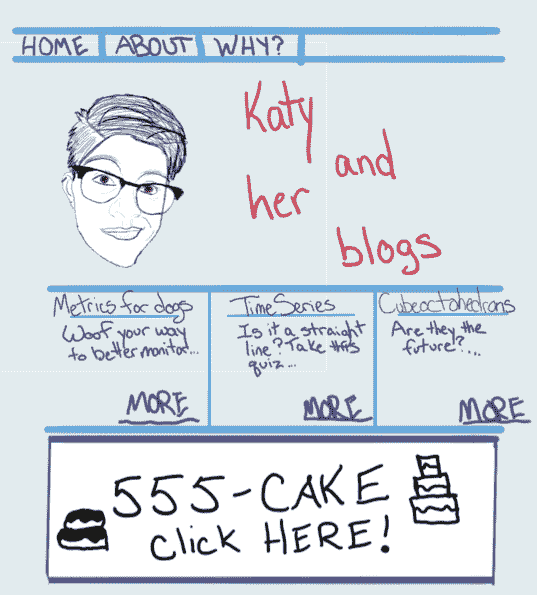 HOME ABOUT WHY?
Katy
and
her
blogs
Metrics for dogs
Woof your way
to better monitor...
MORE
Time Series
Is it a straight
line? Take this
quiz...
MORE
Cubeoctahedrons
Are they the
future?...
MORE
555-CAKE
click HERE!